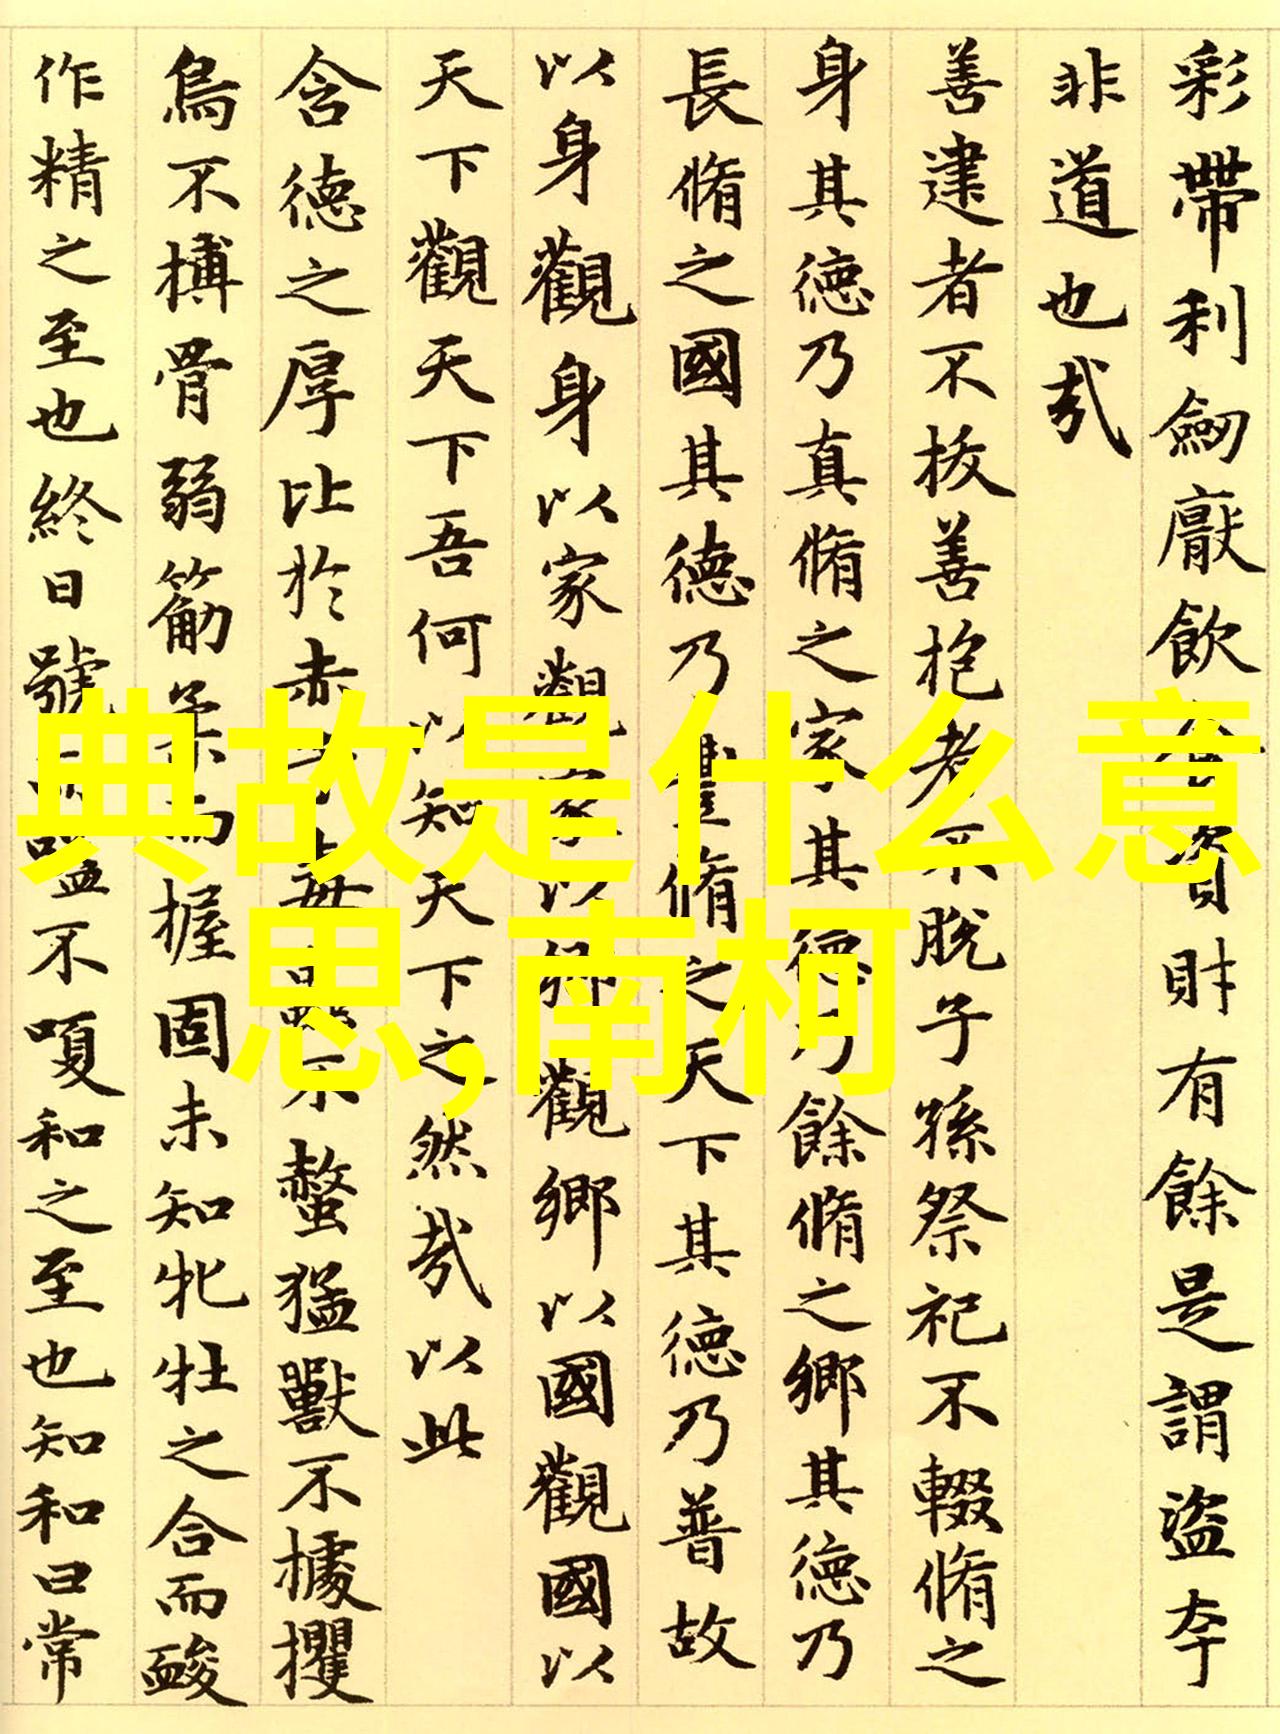 彩帶利劒厭飲食資財有餘是謂盜夸
非道也哉
善建者不拔善抱者不脫子孫祭祀不輟脩之
身其德乃真脩之家其德乃餘脩之鄉其德乃
長脩之國其德乃豐脩之天下其德乃普故
以身觀身以家觀家以鄉觀鄉以國觀國以
天下觀天下吾何以知天下之然哉以此
含德之厚比於赤子毒蟲不螫猛獸不據攫
鳥不搏骨弱筋柔而握固未知牝牡之合而
作精之至也終日號而嗌不嗄和之至也知和曰常
典故是什么意
思,南柯